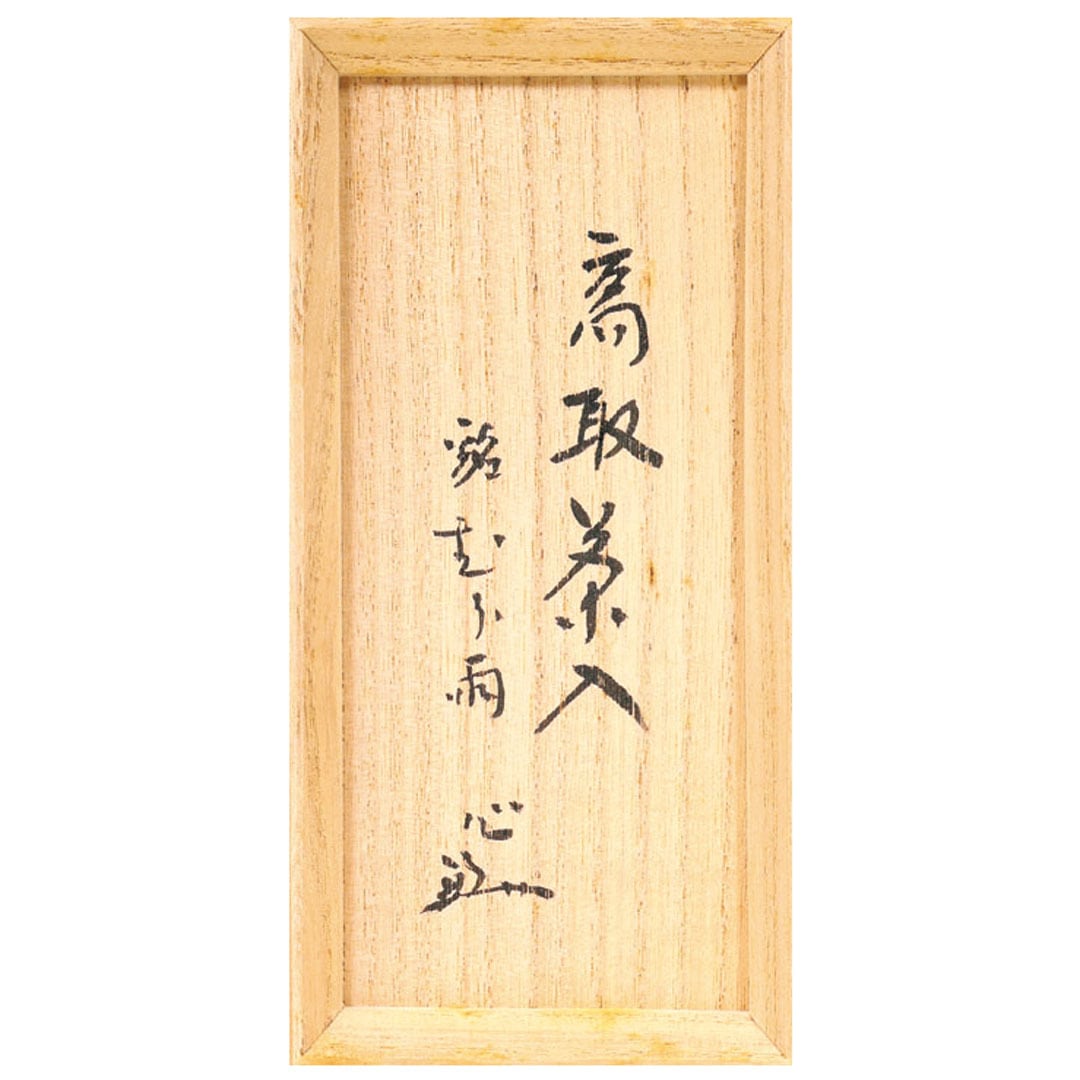 高取茶入
銘むら雨
心